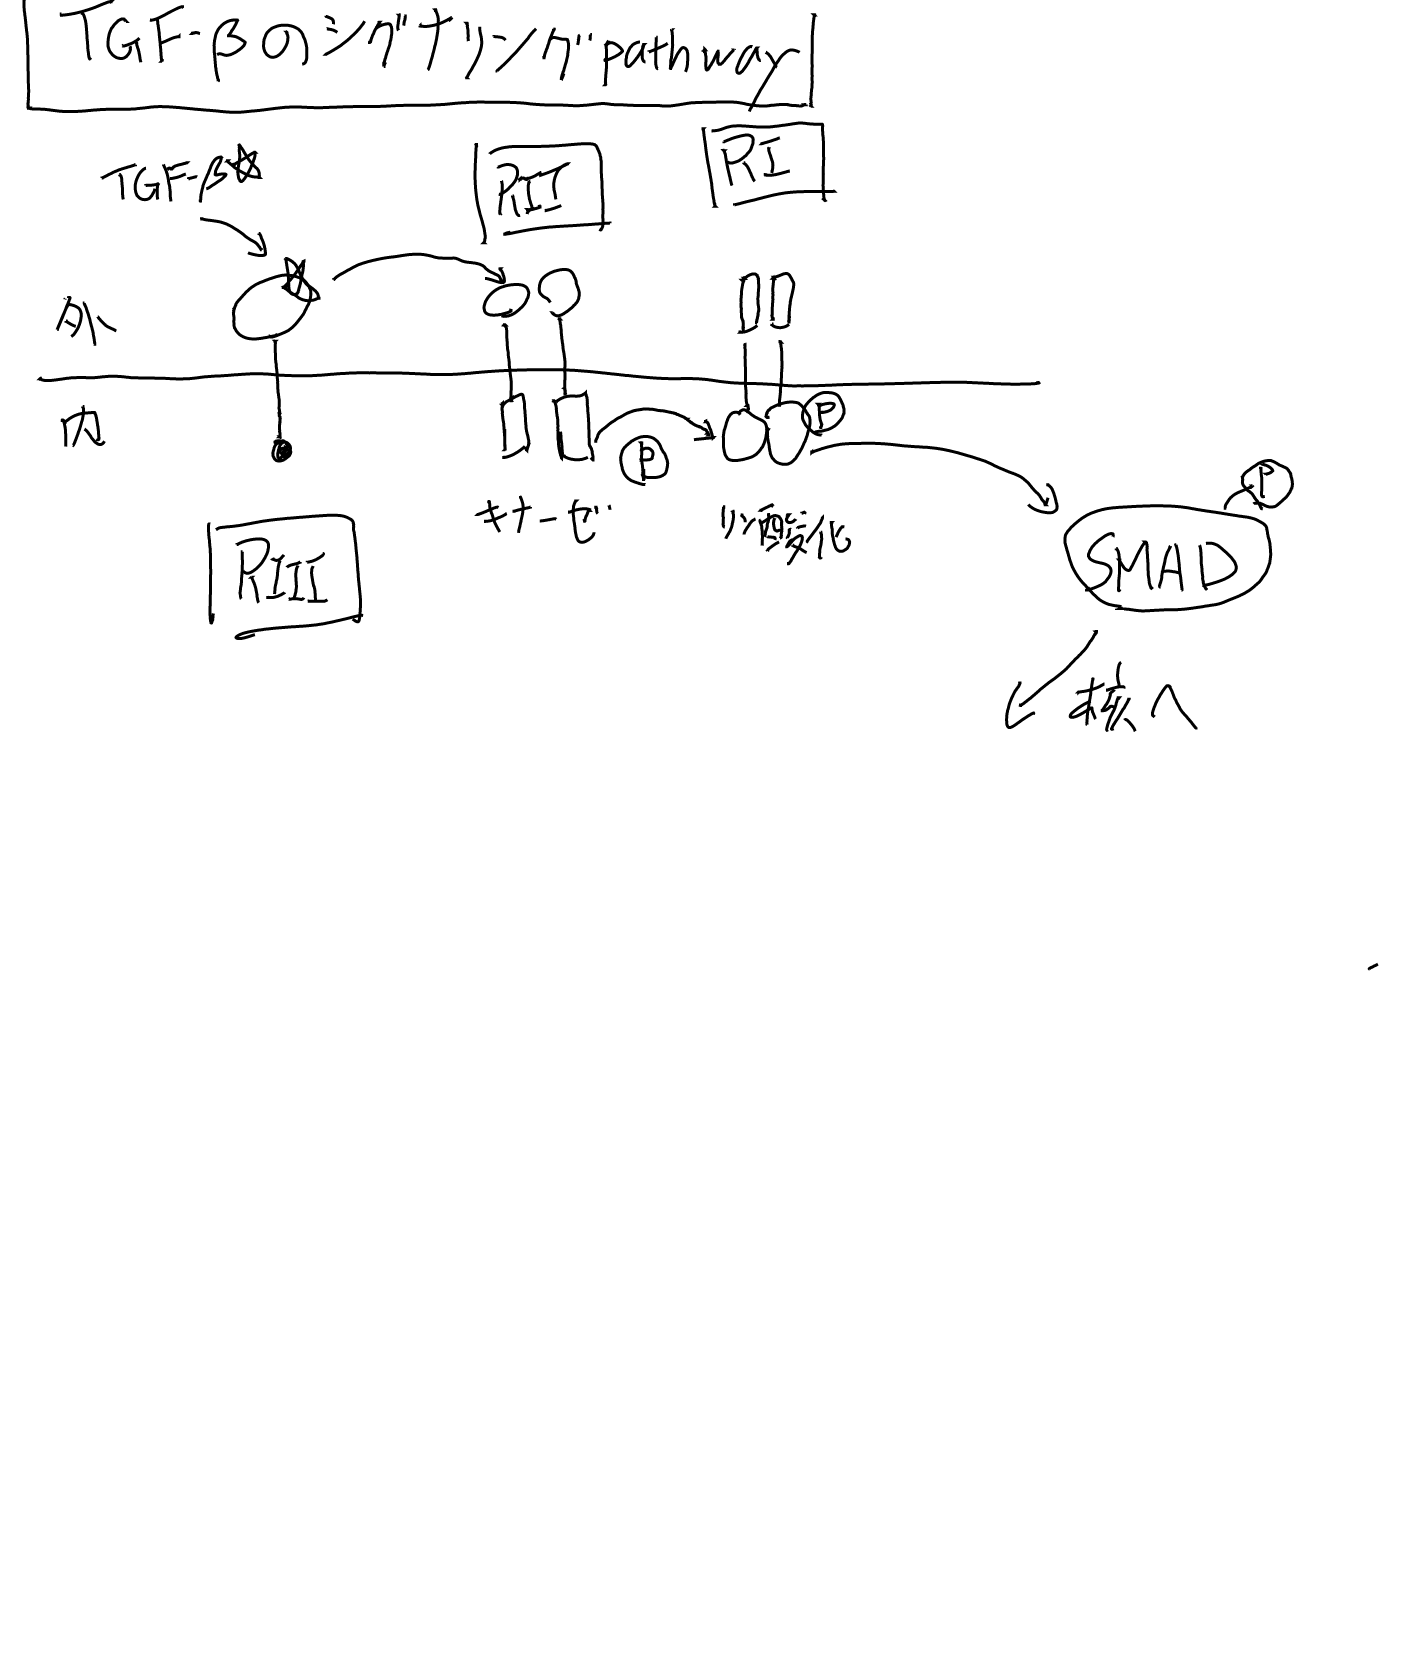 TGF-βのシグナリングpathway
TGF-β☆
RII
RI
外
内
P
P
キナーゼ
リン酸化
RIII
P
SMAD
核へ